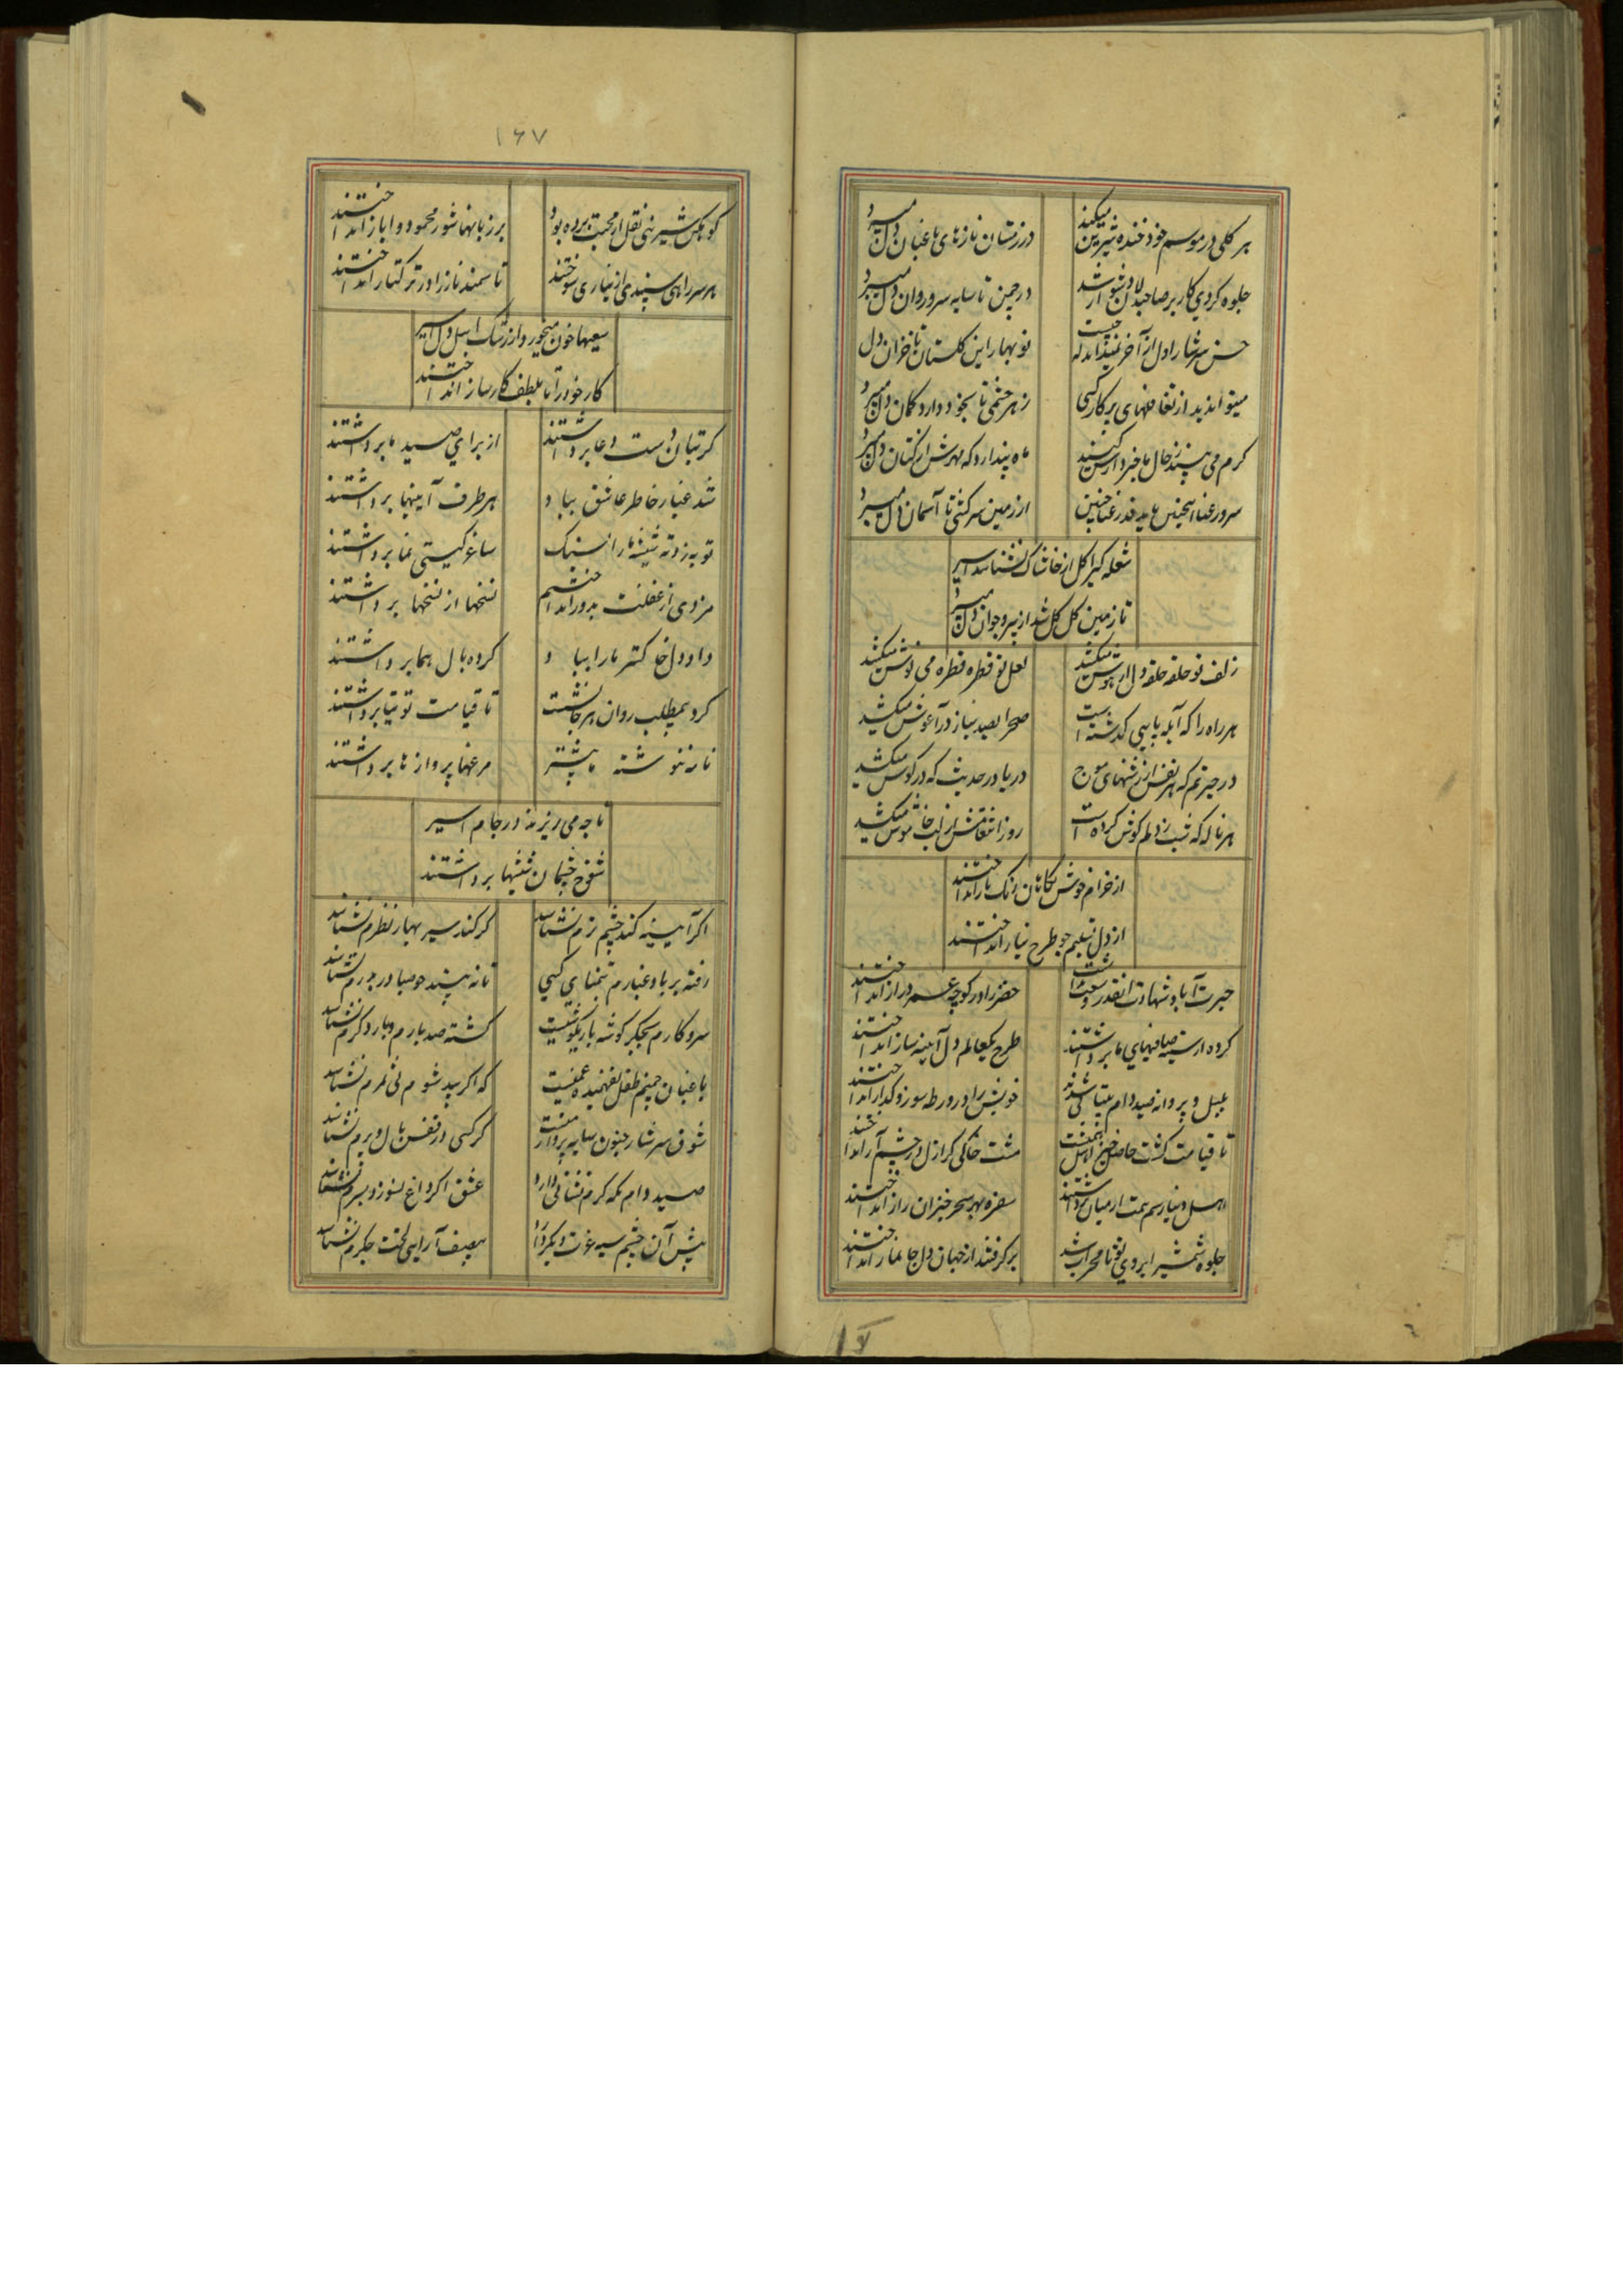 هر گلی در موسم خود خنده شیرین میکند
در زمستان نازهای باغبان دل میبرد
جلوه کردی کار بر صاحبدلان دشوار شد
در چمن تا سایه سرو روان دل میبرد
حسن سرشار ادل از آخر نمیداند که چیست
نوبهار این گلستان تا خزان دل
میتواند دید از تغافلهای پرکار کسی
زهر چشمی تا بخود دارد گمان دل میبرد
گرم می پرسند ز حال ما خبردارش کنید
ماه پندارد که مهرش از کتان دل میبرد
سرو رعنا اینچنین
از زمین سرکشی تا آسمان دل میبرد
شعله گیرا گل از خاشاک نشناسد اسیر
تا زمین گل گل شد از پیر و جوان دل میبرد
زلف تو حلقه حلقه دل از هوش میکشد
لعل تو قطره قطره می نوش میکشد
هر راه را که آبله پایی گذشته است
صحرا بصد نیاز در آغوش میکشد
در حیرتم که هر نفس از نقشهای موج
دریا در حدیث که در گوش میکشد
هر ناله که شب ز دلم گوش کرده است
روز انتقامش از لب خاموش میکشد
از خرام خوش نگاهان رنگ باز انداختند
از دل تسلیم جو طرح نیاز انداختند
حیرت آباد شهادت آنقدر وسعت نداشت
خضر را در کوچه عمر دراز انداختند
کرده از سینه صافیهای ما برداشتند
طرح یکعالم دل آیینه ساز انداختند
بلبل و پروانه صید دام بیتابی شدند
خویش را در ورطه سوز و گداز انداختند
تا قیامت کشت حاصل
مشت خاکی کز ازل در چشم آز انداختند
اهل دنیا رسم همت از میان برداشتند
سفره بهر سحر خیزان راز انداختند
جلوه شمشیر ابروی تو تا محراب شد
برگرفتند از جهان دل جانماز انداختند
۱۶۷
کوهکن شیرینی نقل از محبت برده بود
بر زبانها شور محمود و ایاز انداختند
هر سر راهی سپندی از نیازی سوختند
تا سمند ناز را در ترکتاز انداختند
سعیها خون میخورد از رشک اهل دل اسیر
کار خود را تا بلطف کارساز انداختند
گر بتان دست دعا برداشتند
از برای صید ما برداشتند
شد غبار خاطر عاشق بباد
هر طرف آیینها برداشتند
توبه زد ته شیشه ما را بسنگ
ساغر گیتی نما برداشتند
مزدی از غفلت بدور انداختیم
نسخها از نسخها برداشتند
داد دل خاکستر ما را بباد
گرده بال هما برداشتند
گرد بیمطلب روان هرجا نشست
تا قیامت توتیا برداشتند
نامه ننوشته ما پیشتر
مرغها پرواز ها برداشتند
تا چه می ریزند در جام اسیر
شوخ چشمان شیشها برداشتند
اگر آیینه کند چشم ترم نشناسد
گر کند سیر بهار نظرم نشناسد
رفته بر باد غبارم بتمنای کسی
تا نبیند چو صبا در بدرم نشناسد
سرو کارم بجگر گوشه باریکوشیست
کشته صد بارم و بار دگرم نشناسد
باغبان چمنم طفل نفهمیده غمیست
که اگر بید شوم بی ثمرم نشناسد
شوق سرشار جنون سایه پرواز منست
گر کسی در قفس بال و پرم نشناسد
صید دام نگه گرم نشانی دارد
عشق اگر داغ بسوزد بسرم نشناسد
پیش آن چشم سیه غوث دیگر دارد
بصف آرایی لخت جگرم نشناسد